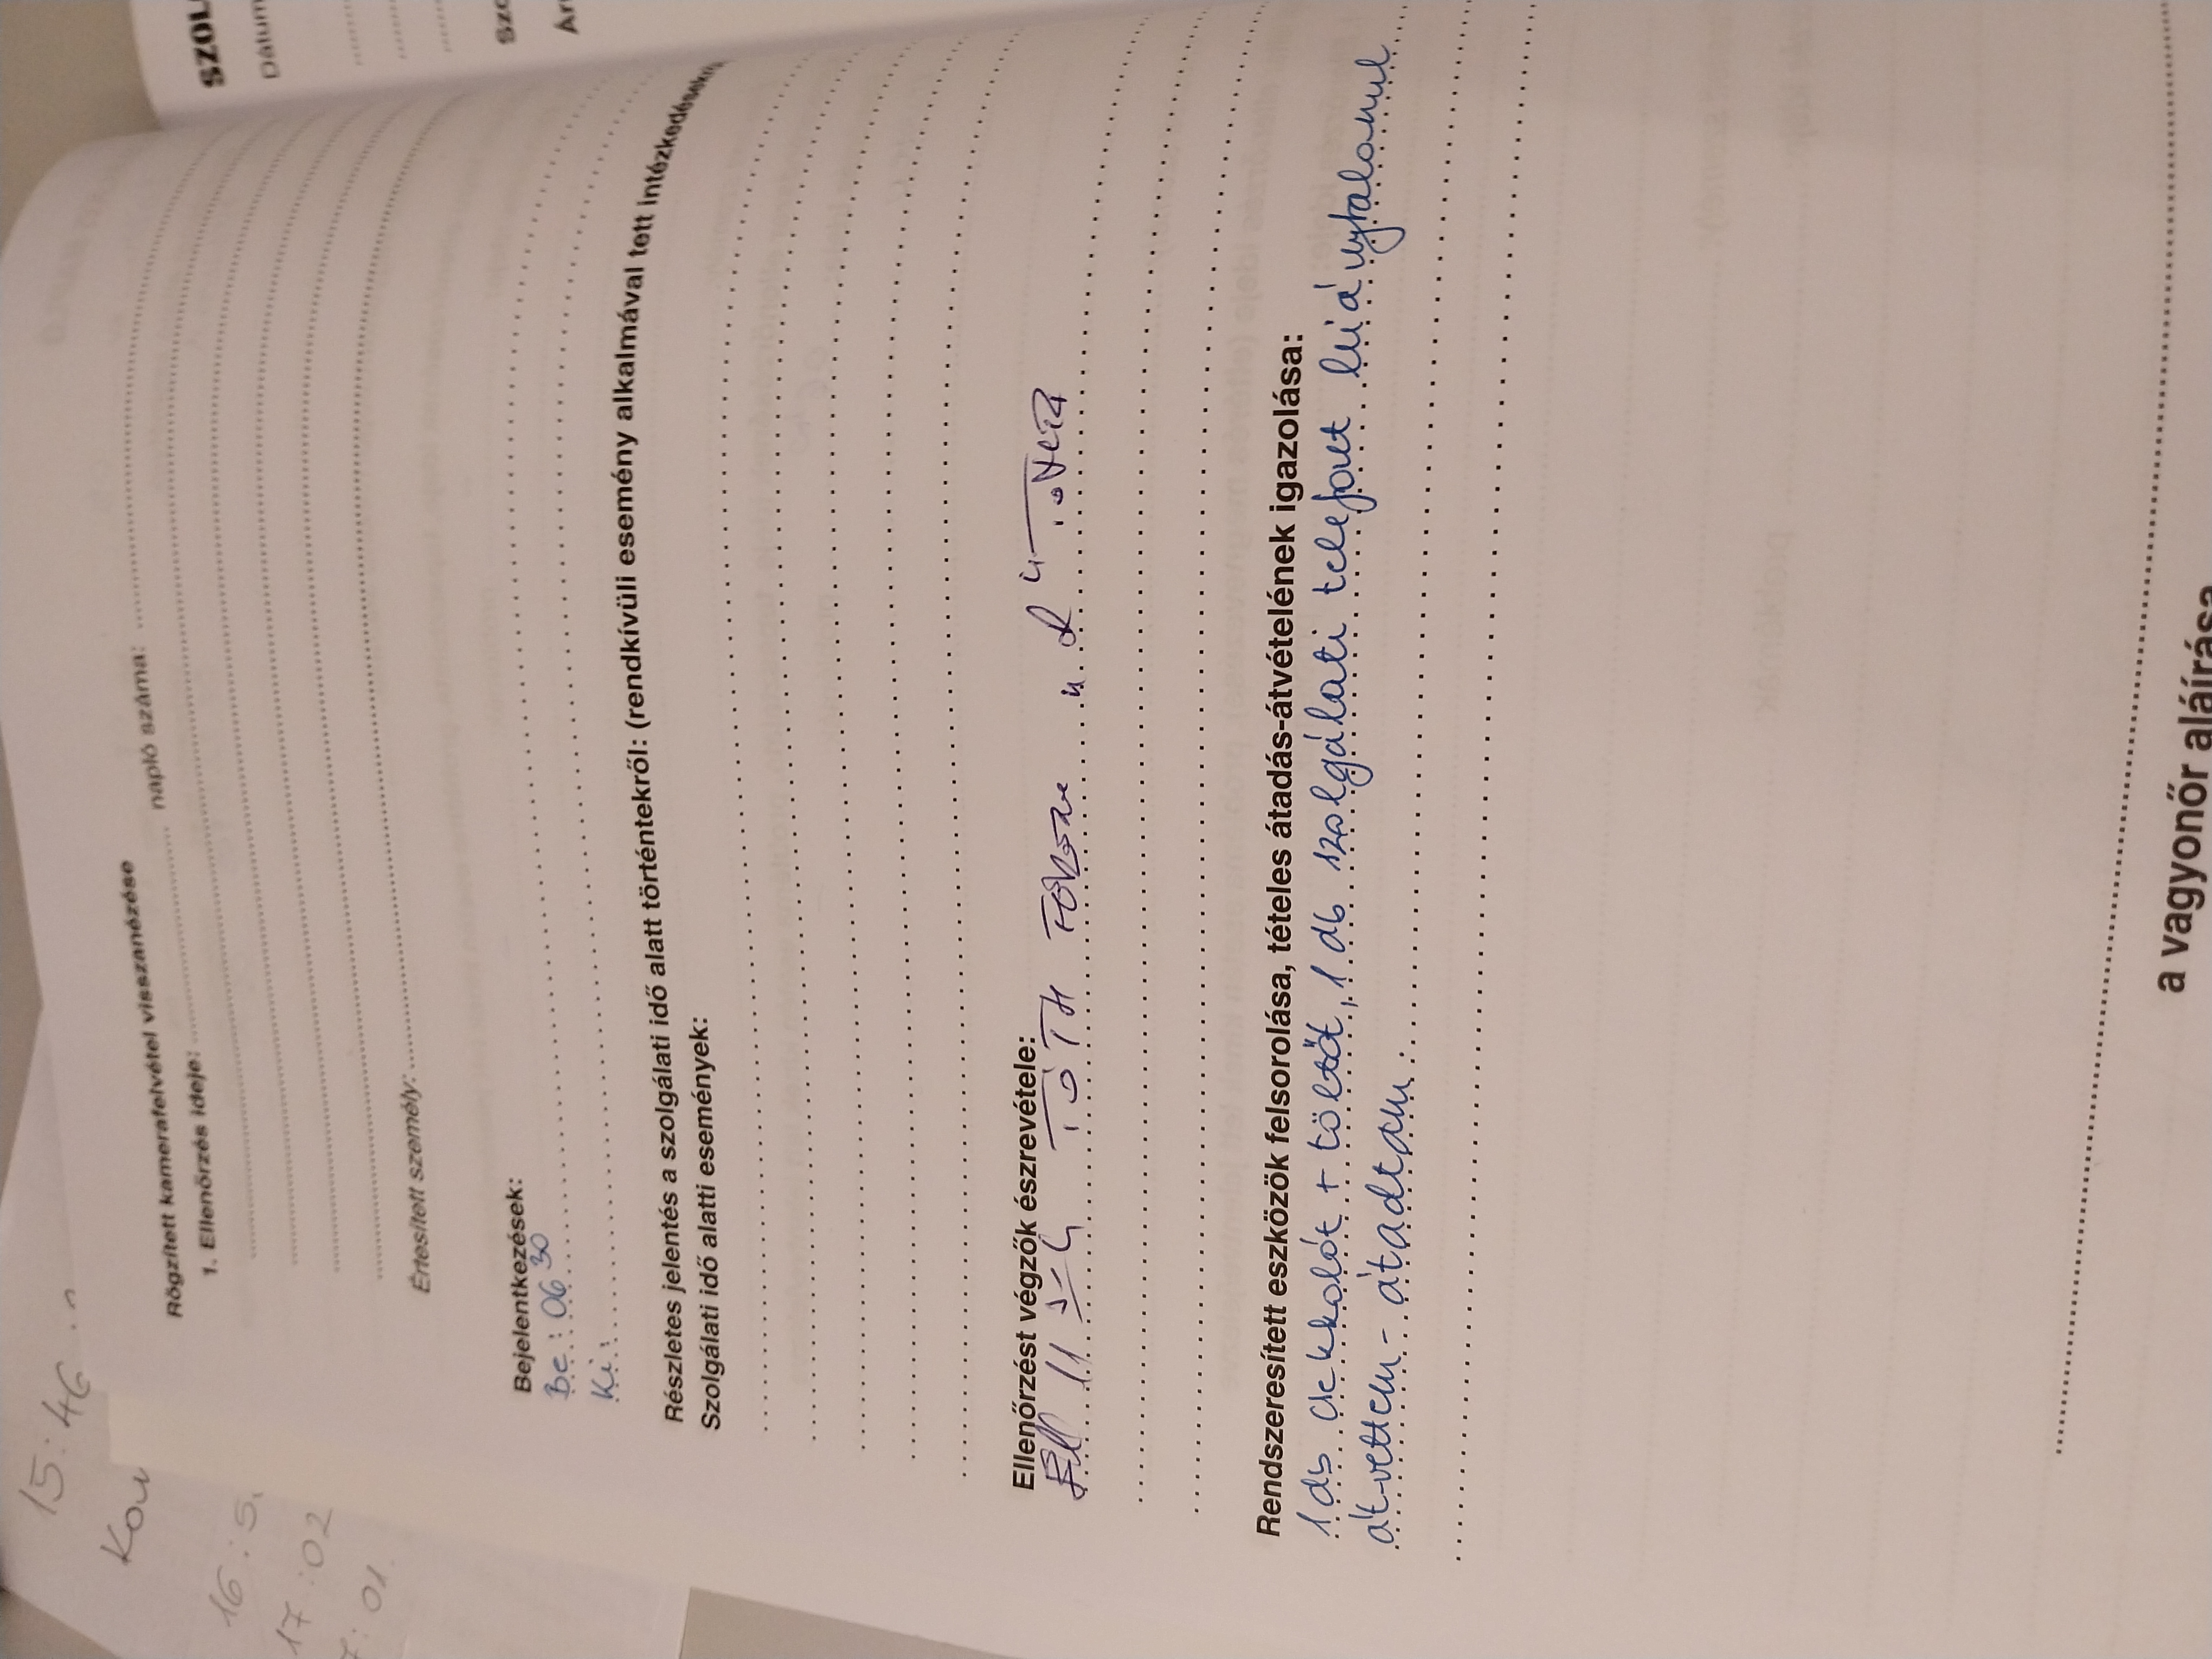 SZOL
Dátum
Szo
Rögzített kamerafelvétel visszanézése napló száma:
1. Ellenőrzés ideje:
Értesített személy:
Bejelentkezések:
Be: 06 30
Ki:
Részletes jelentés a szolgálati idő alatt történtekről: (rendkívüli esemény alkalmával tett intézkedések)
Szolgálati idő alatti események:
Ellenőrzést végzők észrevétele:
Ell 11 TÓTH
Rendszeresített eszközök felsorolása, tételes átadás-átvételének igazolása:
1 db csekkolót + töltőt, 1 db szolgálati telefont hiánytalanul
átvettem - átadtam.
a vagyonőr aláírása
15:46
16:5
17:02
7:01